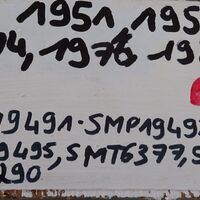 1951, 195
14, 1976, 19
19491-SMP1949
9495, SMT6377, S
290